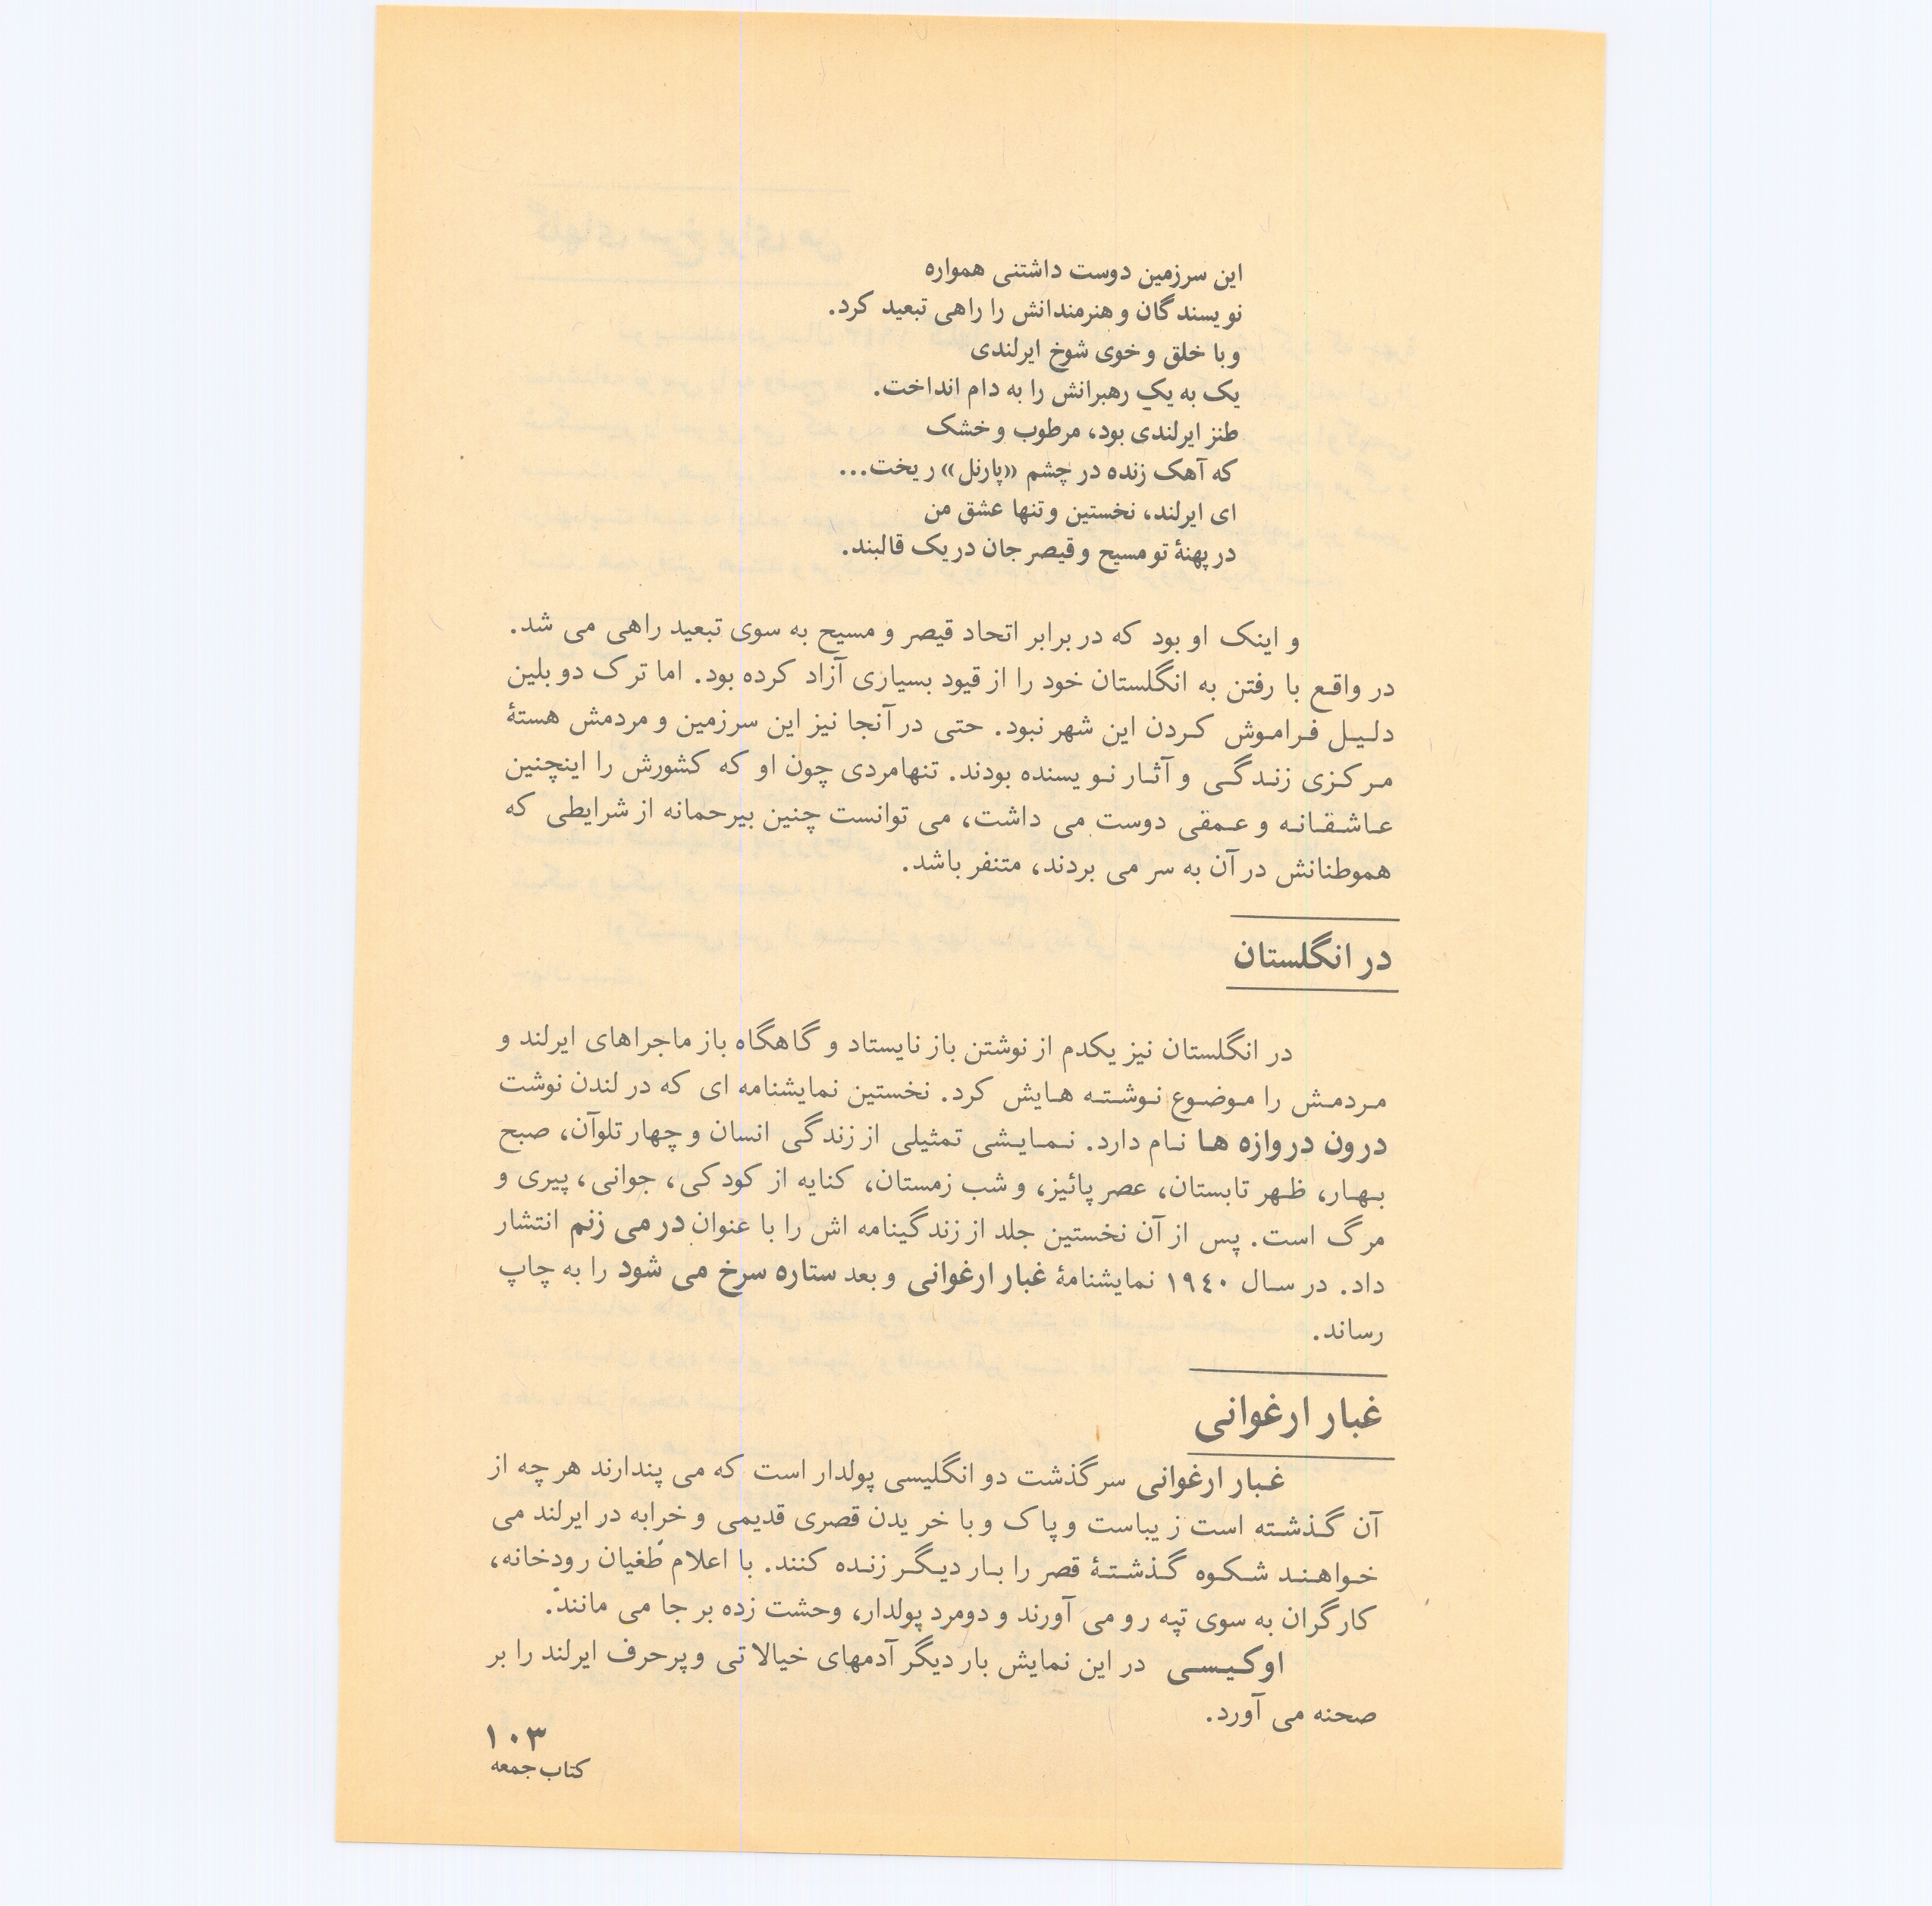 این سرزمین دوست داشتنی همواره
نویسندگان و هنرمندانش را راهی تبعید کرد.
و با خلق و خوی شوخ ایرلندی
یک به یک رهبرانش را به دام انداخت.
طنز ایرلندی بود، مرطوب و خشک
که آهک زنده در چشم «پارنل» ریخت...
ای ایرلند، نخستین و تنها عشق من
در پهنهٔ تو مسیح و قیصر جان در یک قالبند.
و اینک او بود که در برابر اتحاد قیصر و مسیح به سوی تبعید راهی می شد.
در واقع با رفتن به انگلستان خود را از قیود بسیاری آزاد کرده بود. اما ترک دوبلین
دلیل فراموش کردن این شهر نبود. حتی در آنجا نیز این سرزمین و مردمش هستهٔ
مرکزی زندگی و آثار نویسنده بودند. تنهامردی چون او که کشورش را اینچنین
عاشقانه و عمقی دوست می داشت، می توانست چنین بیرحمانه از شرایطی که
هموطنانش در آن به سر می بردند، متنفر باشد.
در انگلستان
در انگلستان نیز یکدم از نوشتن باز نایستاد و گاهگاه باز ماجراهای ایرلند و
مردمش را موضوع نوشته هایش کرد. نخستین نمایشنامه ای که در لندن نوشت
درون دروازه ها نام دارد. نمایشی تمثیلی از زندگی انسان و چهار تلوآن، صبح
بهار، ظهر تابستان، عصر پائیز، و شب زمستان، کنایه از کودکی، جوانی، پیری و
مرگ است. پس از آن نخستین جلد از زندگینامه اش را با عنوان در می زنم انتشار
داد. در سال ۱۹۴۰ نمایشنامهٔ غبار ارغوانی و بعد ستاره سرخ می شود را به چاپ
رساند.
غبار ارغوانی
غبار ارغوانی سرگذشت دو انگلیسی پولدار است که می پندارند هر چه از
آن گذشته است زیباست و پاک و با خریدن قصری قدیمی و خرابه در ایرلند می
خواهند شکوه گذشتهٔ قصر را بار دیگر زنده کنند. با اعلام طغیان رودخانه،
کارگران به سوی تپه رو می آورند و دومرد پولدار، وحشت زده بر جا می مانند.
اوکیسی در این نمایش بار دیگر آدمهای خیالاتی و پرحرف ایرلند را بر
صحنه می آورد.
۱۰۳
کتاب جمعه